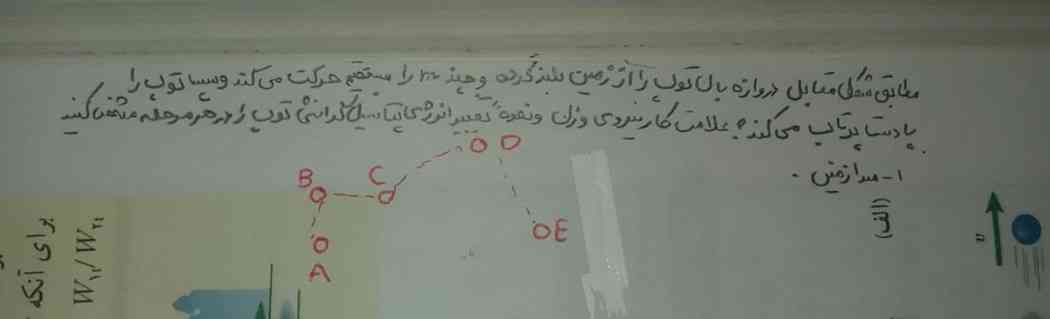 مطابق شکل مقابل دروازه بان توپ را از زمین بلند کرده و چند m را مستقیم حرکت می کند و سپس توپ را
با دست پرتاب می کند؟ علامت کار نیروی وزن و نحوهٔ تغییر انرژی پتانسیل گرانشی توپ را در هر مرحله مشخص کنید
۱- مبدا زمین .
B C D
E
A
(الف)
برای آنکه